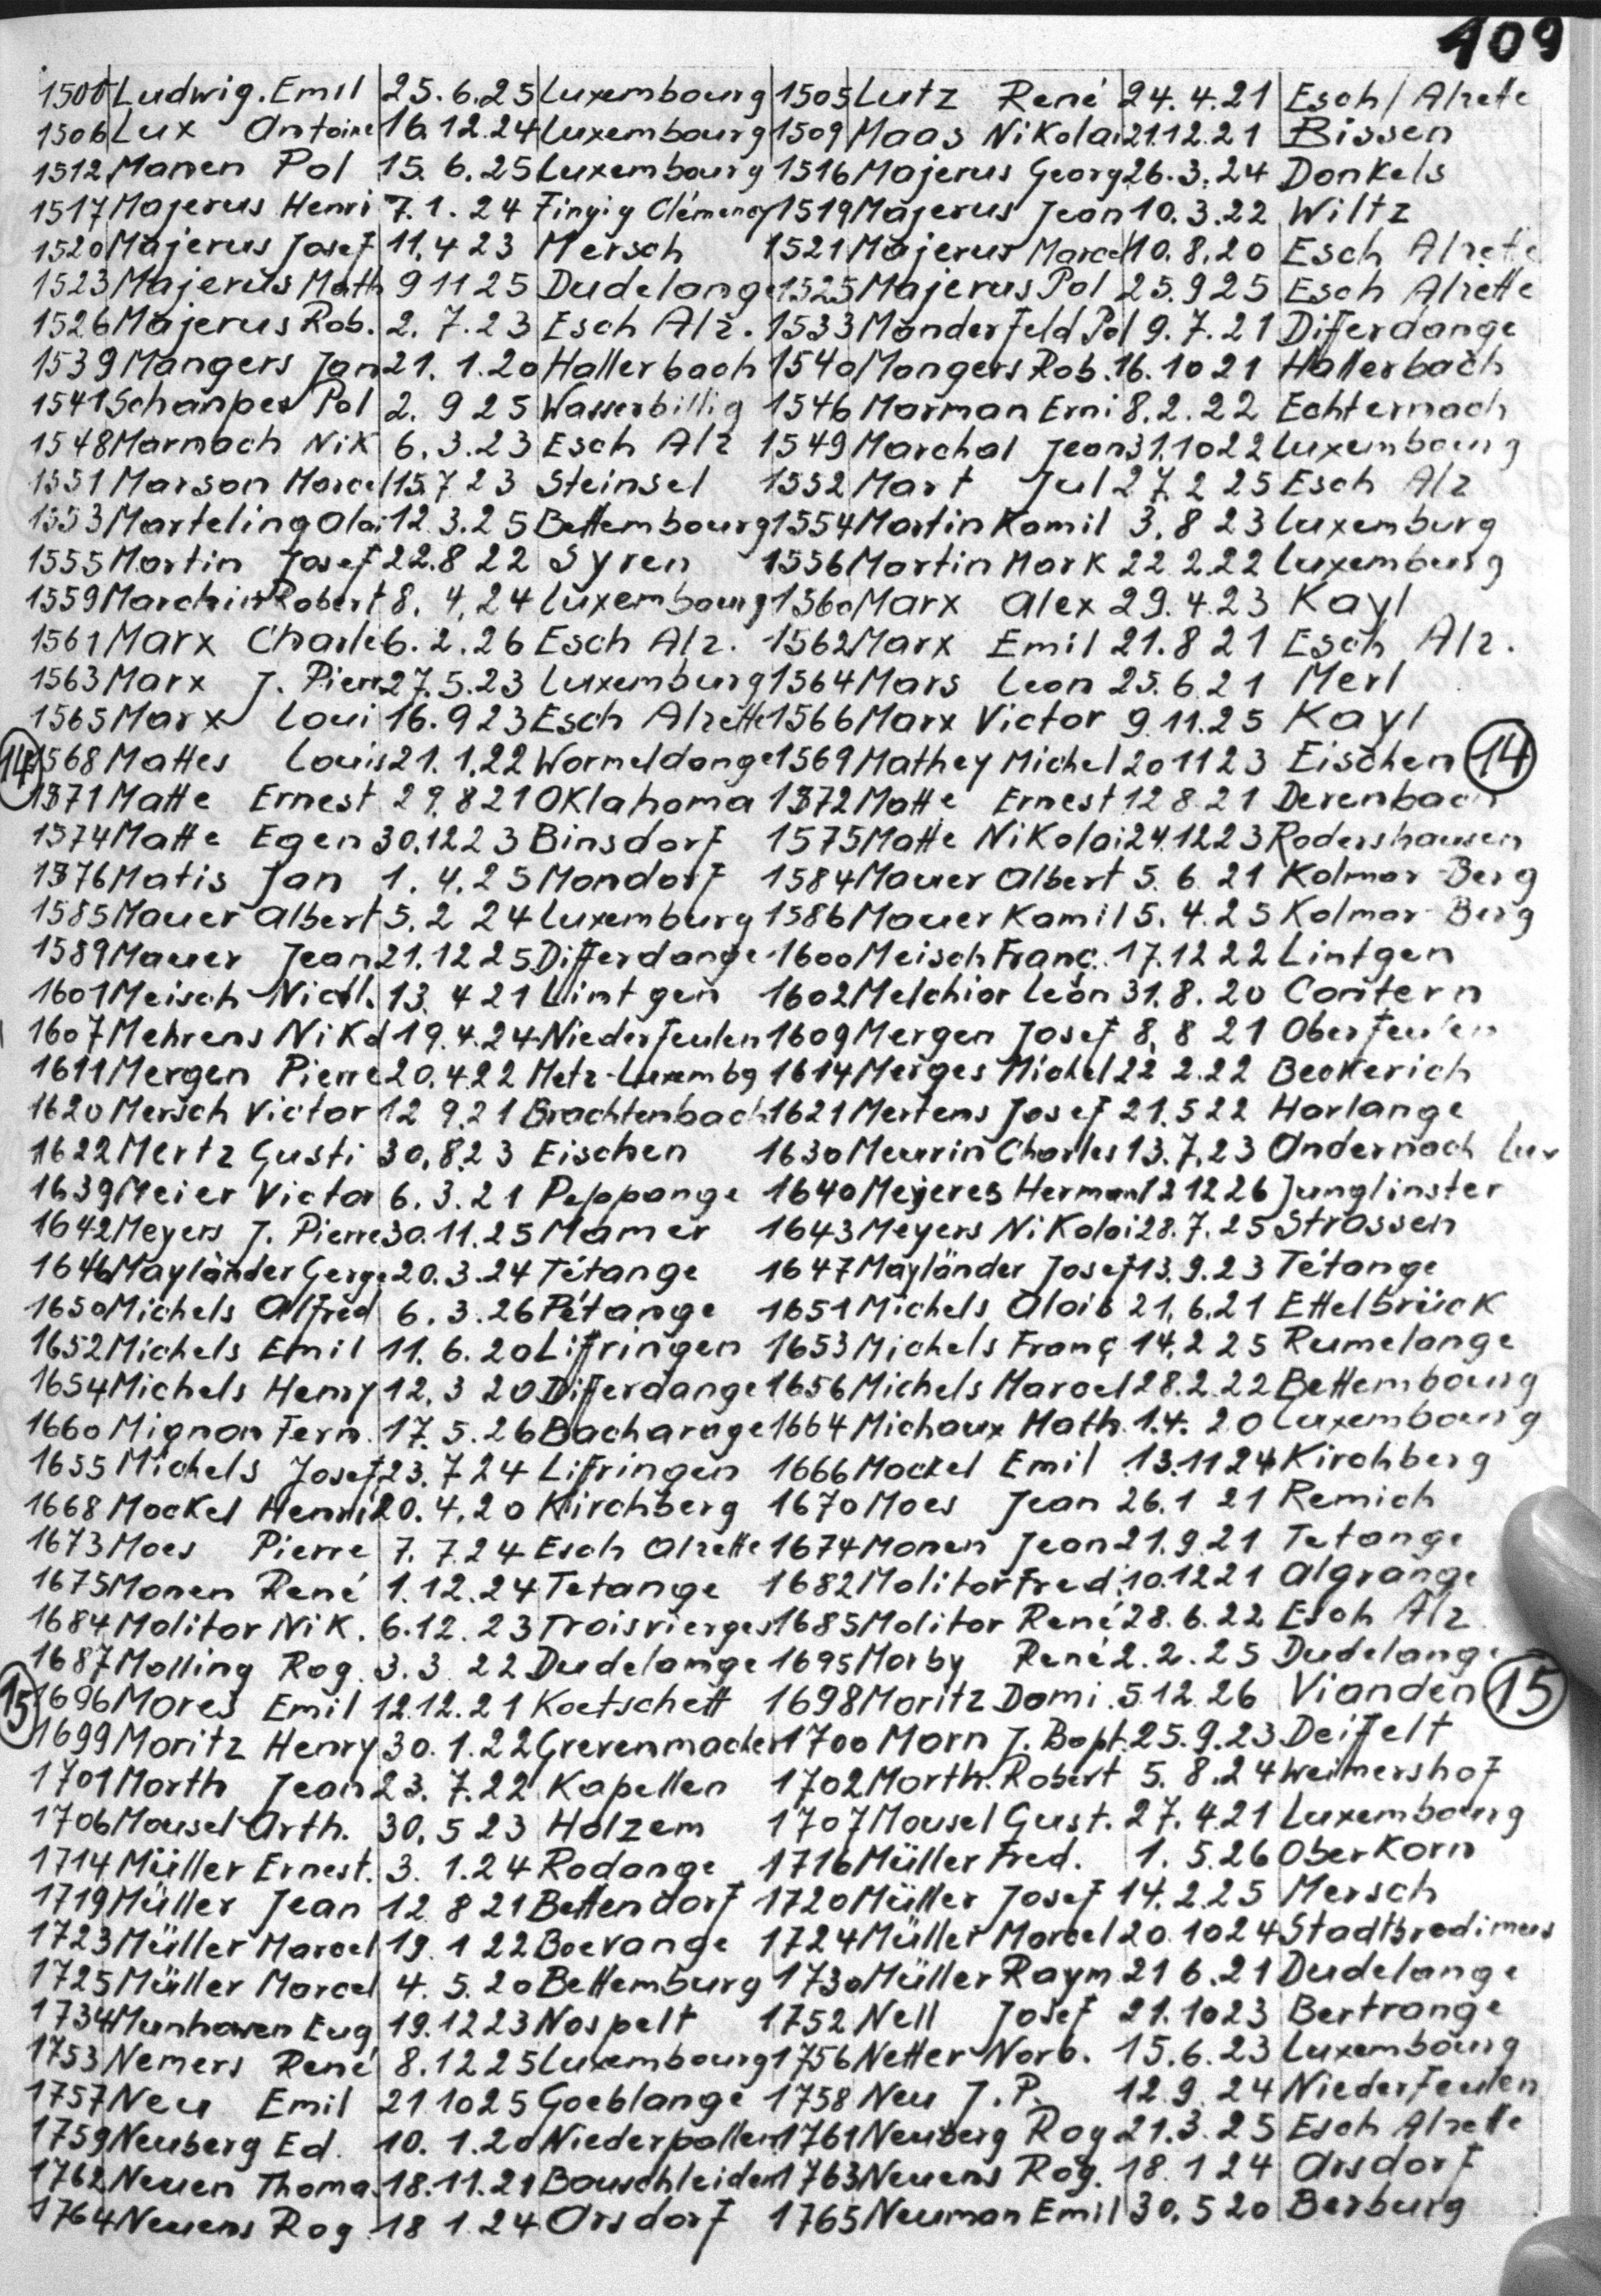 109
1500 Ludwig. Emil 25.6.25 Luxembourg 1505 Lutz René 24.4.21 Esch/Alzette
1506 Lux Antoine 16.12.24 Luxembourg 1509 Maas Nikolai 21.12.21 Bissen
1512 Manen Pol 15.6.25 Luxembourg 1516 Majerus Georg 26.3.24 Donkels
1517 Majerus Henri 7.1.24 Fingig Clémency 1519 Majerus Jean 10.3.22 Wiltz
1520 Majerus Josef 11.4 23 Mersch 1521 Majerus Marcel 10.8.20 Esch Alzette
1523 Majerus Math 9 11 25 Dudelange 1525 Majerus Pol 25.9 25 Esch Alzette
1526 Majerus Rob. 2.7.23 Esch Alz. 1533 Manderfeld Pol 9.7.21 Differdange
1539 Mangers Jan 21.1.20 Hallerbach 1540 Mangers Rob. 16.10 21 Hallerbach
1541 Schanpes Pol 2.9 25 Wasserbillig 1546 Marman Erni 8.2.22 Echternach
1548 Marnach Nik 6.3.23 Esch Alz 1549 Marchal Jean 31.10 22 Luxembourg
1551 Marson Marcel 15.7 23 Steinsel 1552 Mart Jul 27.2 25 Esch Alz
1553 Marteling Aloi 12.3.25 Bettembourg 1554 Martin Kamil 3.8 23 Luxemburg
1555 Martin Josef 22.8 22 Syren 1556 Martin Mark 22 2.22 Luxemburg
1559 Robert 8.4.24 Luxembourg 1560 Marx Alex 29.4.23 Kayl
1561 Marx Charle 6.2.26 Esch Alz. 1562 Marx Emil 21.8 21 Esch Alz.
1563 Marx J. Pierr 27.5.23 Luxemburg 1564 Mars Leon 25.6.21 Merl
1565 Marx Loui 16.9 23 Esch Alzette 1566 Marx Victor 9.11.25 Kayl
14 1568 Mattes Louis 21.1.22 Wormeldange 1569 Mathey Michel 20 11 23 Eischen 14
1571 Matte Ernest 29.8 21 Oklahoma 1572 Matte Ernest 12 8.21 Derenbach
1574 Matte Egen 30.12 23 Binsdorf 1575 Matte Nikolai 24.12 23 Rodershausen
1576 Matis Jan 1.4.25 Mondorf 1584 Mauer Albert 5.6 21 Kolmar-Berg
1585 Mauer Albert 5.2 24 Luxemburg 1586 Mauer Kamil 5.4.25 Kolmar-Berg
1589 Mauer Jean 21.12 25 Differdange 1600 Meisch Franç. 17.12 22 Lintgen
1601 Meisch 13.4 21 Lintgen 1602 Melchior Léon 31.8.20 Contern
1607 Mehrens Nikol 19.4.24 Niederfeulen 1609 Mergen Josef 8.8 21 Oberfeulen
1611 Mergen Pierre 20.4.22 Metz-Luxembg 1614 Merges Michel 22 2.22 Beckerich
1620 Mersch Victor 12 9.21 Brachtenbach 1621 Mertens Josef 21.5 22 Harlange
1622 Mertz Gusti 30.8.23 Eischen 1630 Meurin Charles 13.7.23 Andernach Lux
1639 Meier Victor 6.3.21 Peppange 1640 Meyeres Herman 12 12 26 Junglinster
1642 Meyers J. Pierre 30.11.25 Mamer 1643 Meyers Nikolai 28.7.25 Strassen
1646 Mayländer Gerge 20.3.24 Tétange 1647 Mayländer Josef 13.9.23 Tétange
1650 Michels Alfred 6.3.26 Pétange 1651 Michels Alois 21.6.21 Ettelbrück
1652 Michels Emil 11.6.20 Liffringen 1653 Michels Franç 14.2 25 Rumelange
1654 Michels Henry 12.3 20 Differdange 1656 Michels Marcel 28.2.22 Bettembourg
1660 Mignon Fern. 17.5.26 Bacharage 1664 Michaux Math. 1.4.20 Luxembourg
1655 Michels Josef 23.7 24 Lifringen 1666 Mockel Emil 13.11 24 Kirchberg
1668 Mockel Henri 20.4.20 Kirchberg 1670 Moes Jean 26.1 21 Remich
1673 Moes Pierre 7.7 24 Esch Alzette 1674 Monen Jean 21.9.21 Tetange
1675 Monen René 1.12.24 Tetange 1682 Molitor Fred. 10.12 21 Algrange
1684 Molitor Nik. 6.12.23 Troisvierges 1685 Molitor René 28.6.22 Esch Alz
1687 Molling Rog. 3.3 22 Dudelange 1695 Morby René 2.2.25 Dudelange
15 1696 Mores Emil 12.12.21 Koetschett 1698 Moritz Domi. 5.12 26 Vianden 15
1699 Moritz Henry 30.1.22 Grevenmacher 1700 Morn J. Bapt. 25.9.23 Deiffelt
1701 Morth Jean 23.7.22 Kapellen 1702 Morth. Robert 5.8.24 Weimershof
1706 Mousel Arth. 30.5 23 Holzem 1707 Mousel Gust. 27.4.21 Luxembourg
1714 Müller Ernest. 3.1.24 Rodange 1716 Müller Fred. 1.5.26 Oberkorn
1719 Müller Jean 12 8 21 Bettendorf 1720 Müller Josef 14.2.25 Mersch
1723 Müller Marcel 19.1 22 Boevange 1724 Müller Marcel 20.10 24 Stadtbredimus
1725 Müller Marcel 4.5.20 Bettemburg 1730 Müller Raym 21 6.21 Dudelange
1734 Munhowen Eug 19.12 23 Nospelt 1752 Nell Josef 21.10 23 Bertrange
1753 Nemers René 8.12 25 Luxembourg 1756 Netter Norb. 15.6.23 Luxembourg
1757 Neu Emil 21 10 25 Goeblange 1758 Neu J.P. 12.9.24 Niederfeulen
1759 Neuberg Ed. 10.1.20 Niederpallen 1761 Neuberg Rog 21.3.25 Esch Alzette
1762 Neuen Thoma. 18.11.21 Bouschleiden 1763 Neuens Rog. 18.1 24 Arsdorf
1764 Neuens Rog 18 1.24 Arsdorf 1765 Neuman Emil 30.5 20 Berburg